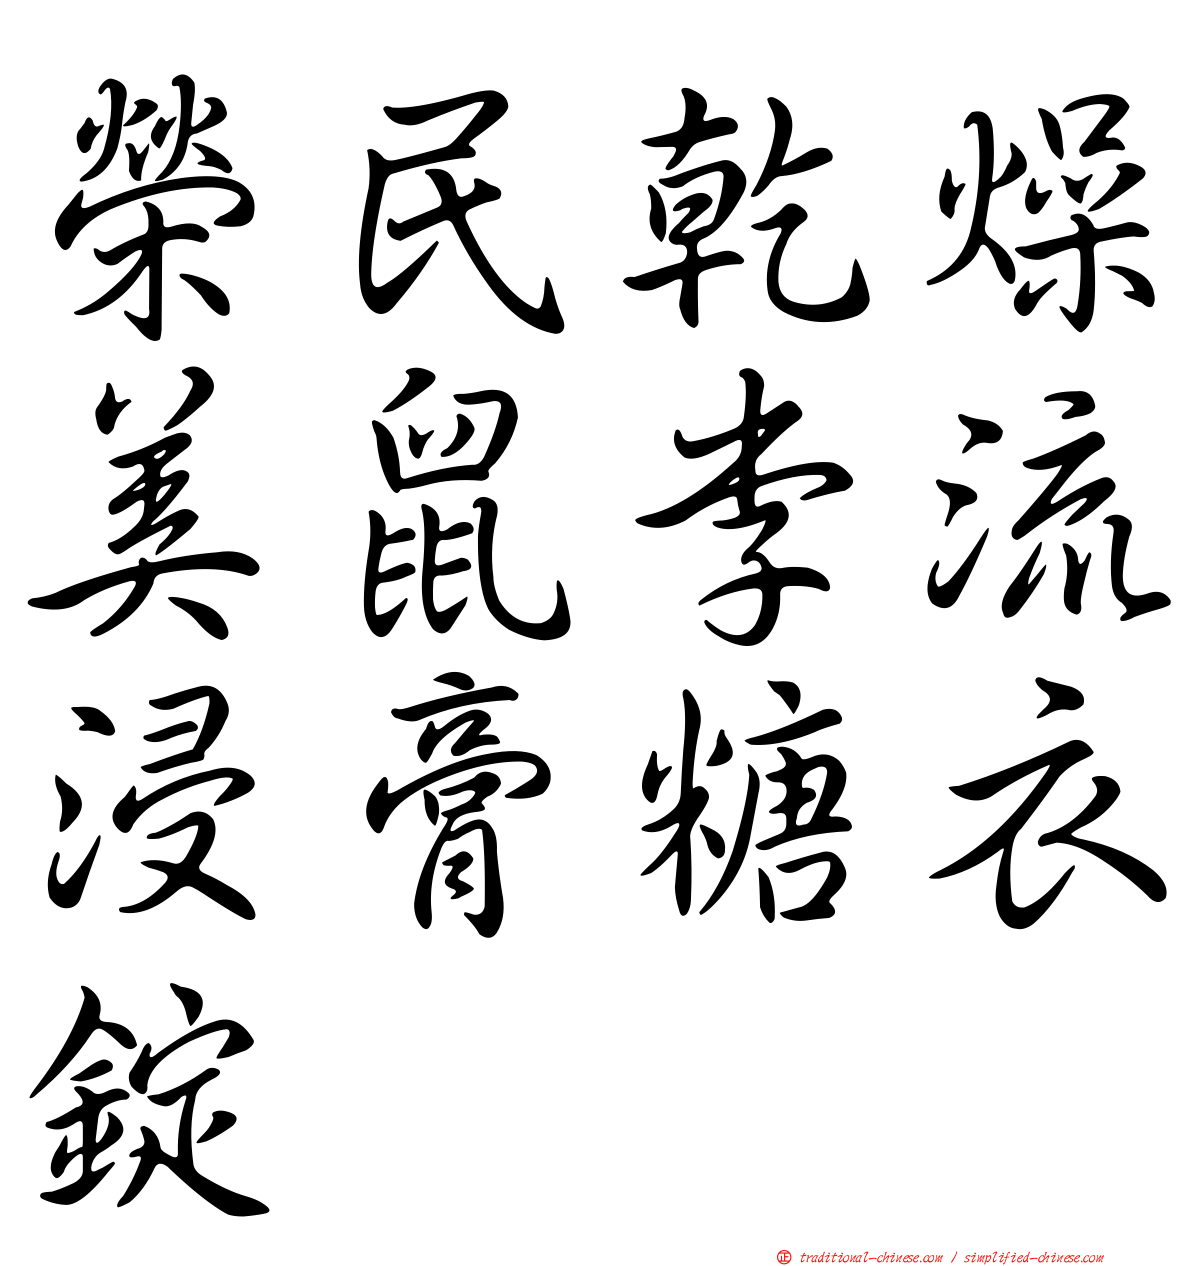 榮民乾燥
美鼠李流
浸膏糖衣
錠
正 traditional-chinese.com / simplified-chinese.com